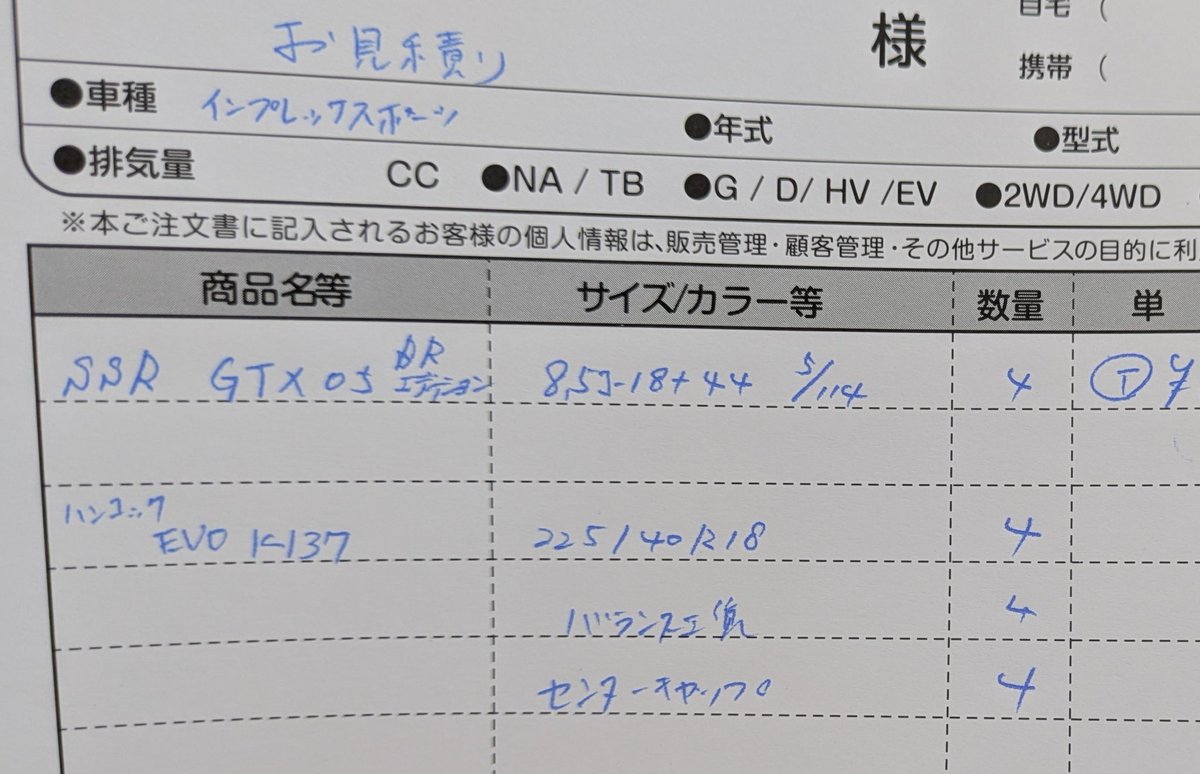 自宅 (
お見積り 様
携帯 (
●車種 インプレックスポーツ ●年式 ●型式
●排気量 CC ●NA / TB ●G / D/ HV /EV ●2WD/4WD
※本ご注文書に記入されるお客様の個人情報は、販売管理・顧客管理・その他サービスの目的に利
商品名等 サイズ/カラー等 数量 単
SSR GTX05 エディション 8.5J-18+44 5/114 4 Ⓣ
ハンコック
EVO K137 225/40R18 4
バランス工賃 4
センターキャップ 4